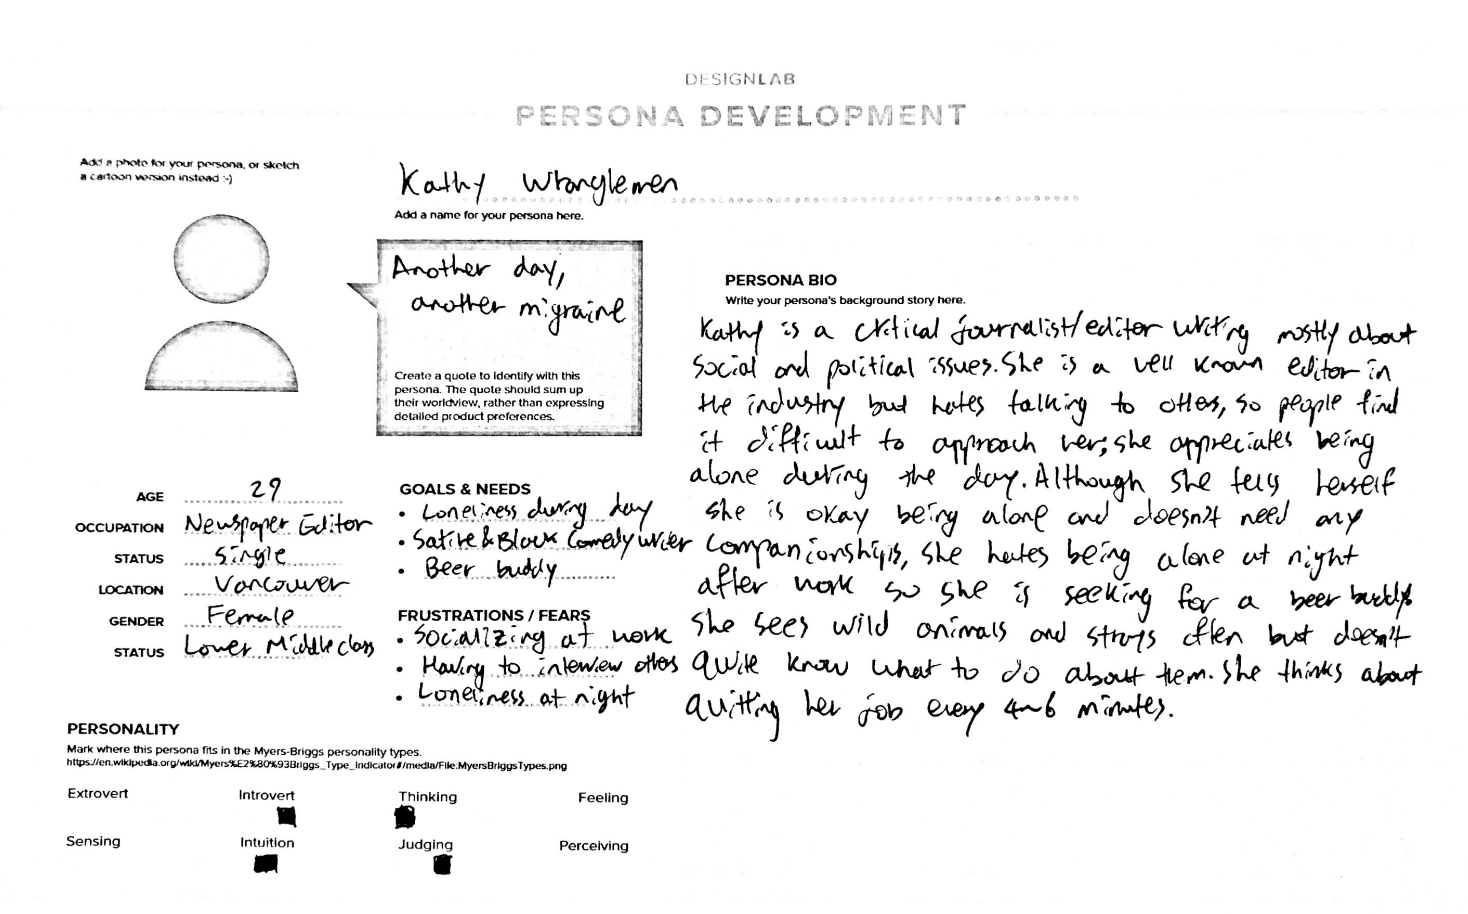 DESIGNLAB
PERSONA DEVELOPMENT
Add a photo for your persona, or sketch
a cartoon version instead :-)
Kathy Wranglemen
Add a name for your persona here.
Another day,
another migraine
Create a quote to identify with this
persona. The quote should sum up
their worldview, rather than expressing
detailed product preferences.
AGE 29
OCCUPATION Newspaper Editor
STATUS single
LOCATION Vancouver
GENDER Female
STATUS Lower Middle class
GOALS & NEEDS
• Loneliness during day
• Satire & Black Comedy writer
• Beer buddy
FRUSTRATIONS / FEARS
• Socializing at work
• Having to interview others
• Loneliness at night
PERSONA BIO
Write your persona's background story here.
Kathy is a critical journalist/editor writing mostly about
social and political issues. She is a well known editor in
the industry but hates talking to others, so people find
it difficult to approach her; she appreciates being
alone during the day. Although she tells herself
she is okay being alone and doesn't need any
companionships, she hates being alone at night
after work so she is seeking for a beer buddy.
She sees wild animals and strays often but doesn't
quite know what to do about them. She thinks about
quitting her job every 4~6 minutes.
PERSONALITY
Mark where this persona fits in the Myers-Briggs personality types.
https://en.wikipedia.org/wiki/Myers%E2%80%93Briggs_Type_Indicator#/media/File:MyersBriggsTypes.png
Extrovert Introvert Thinking Feeling
Sensing Intuition Judging Perceiving